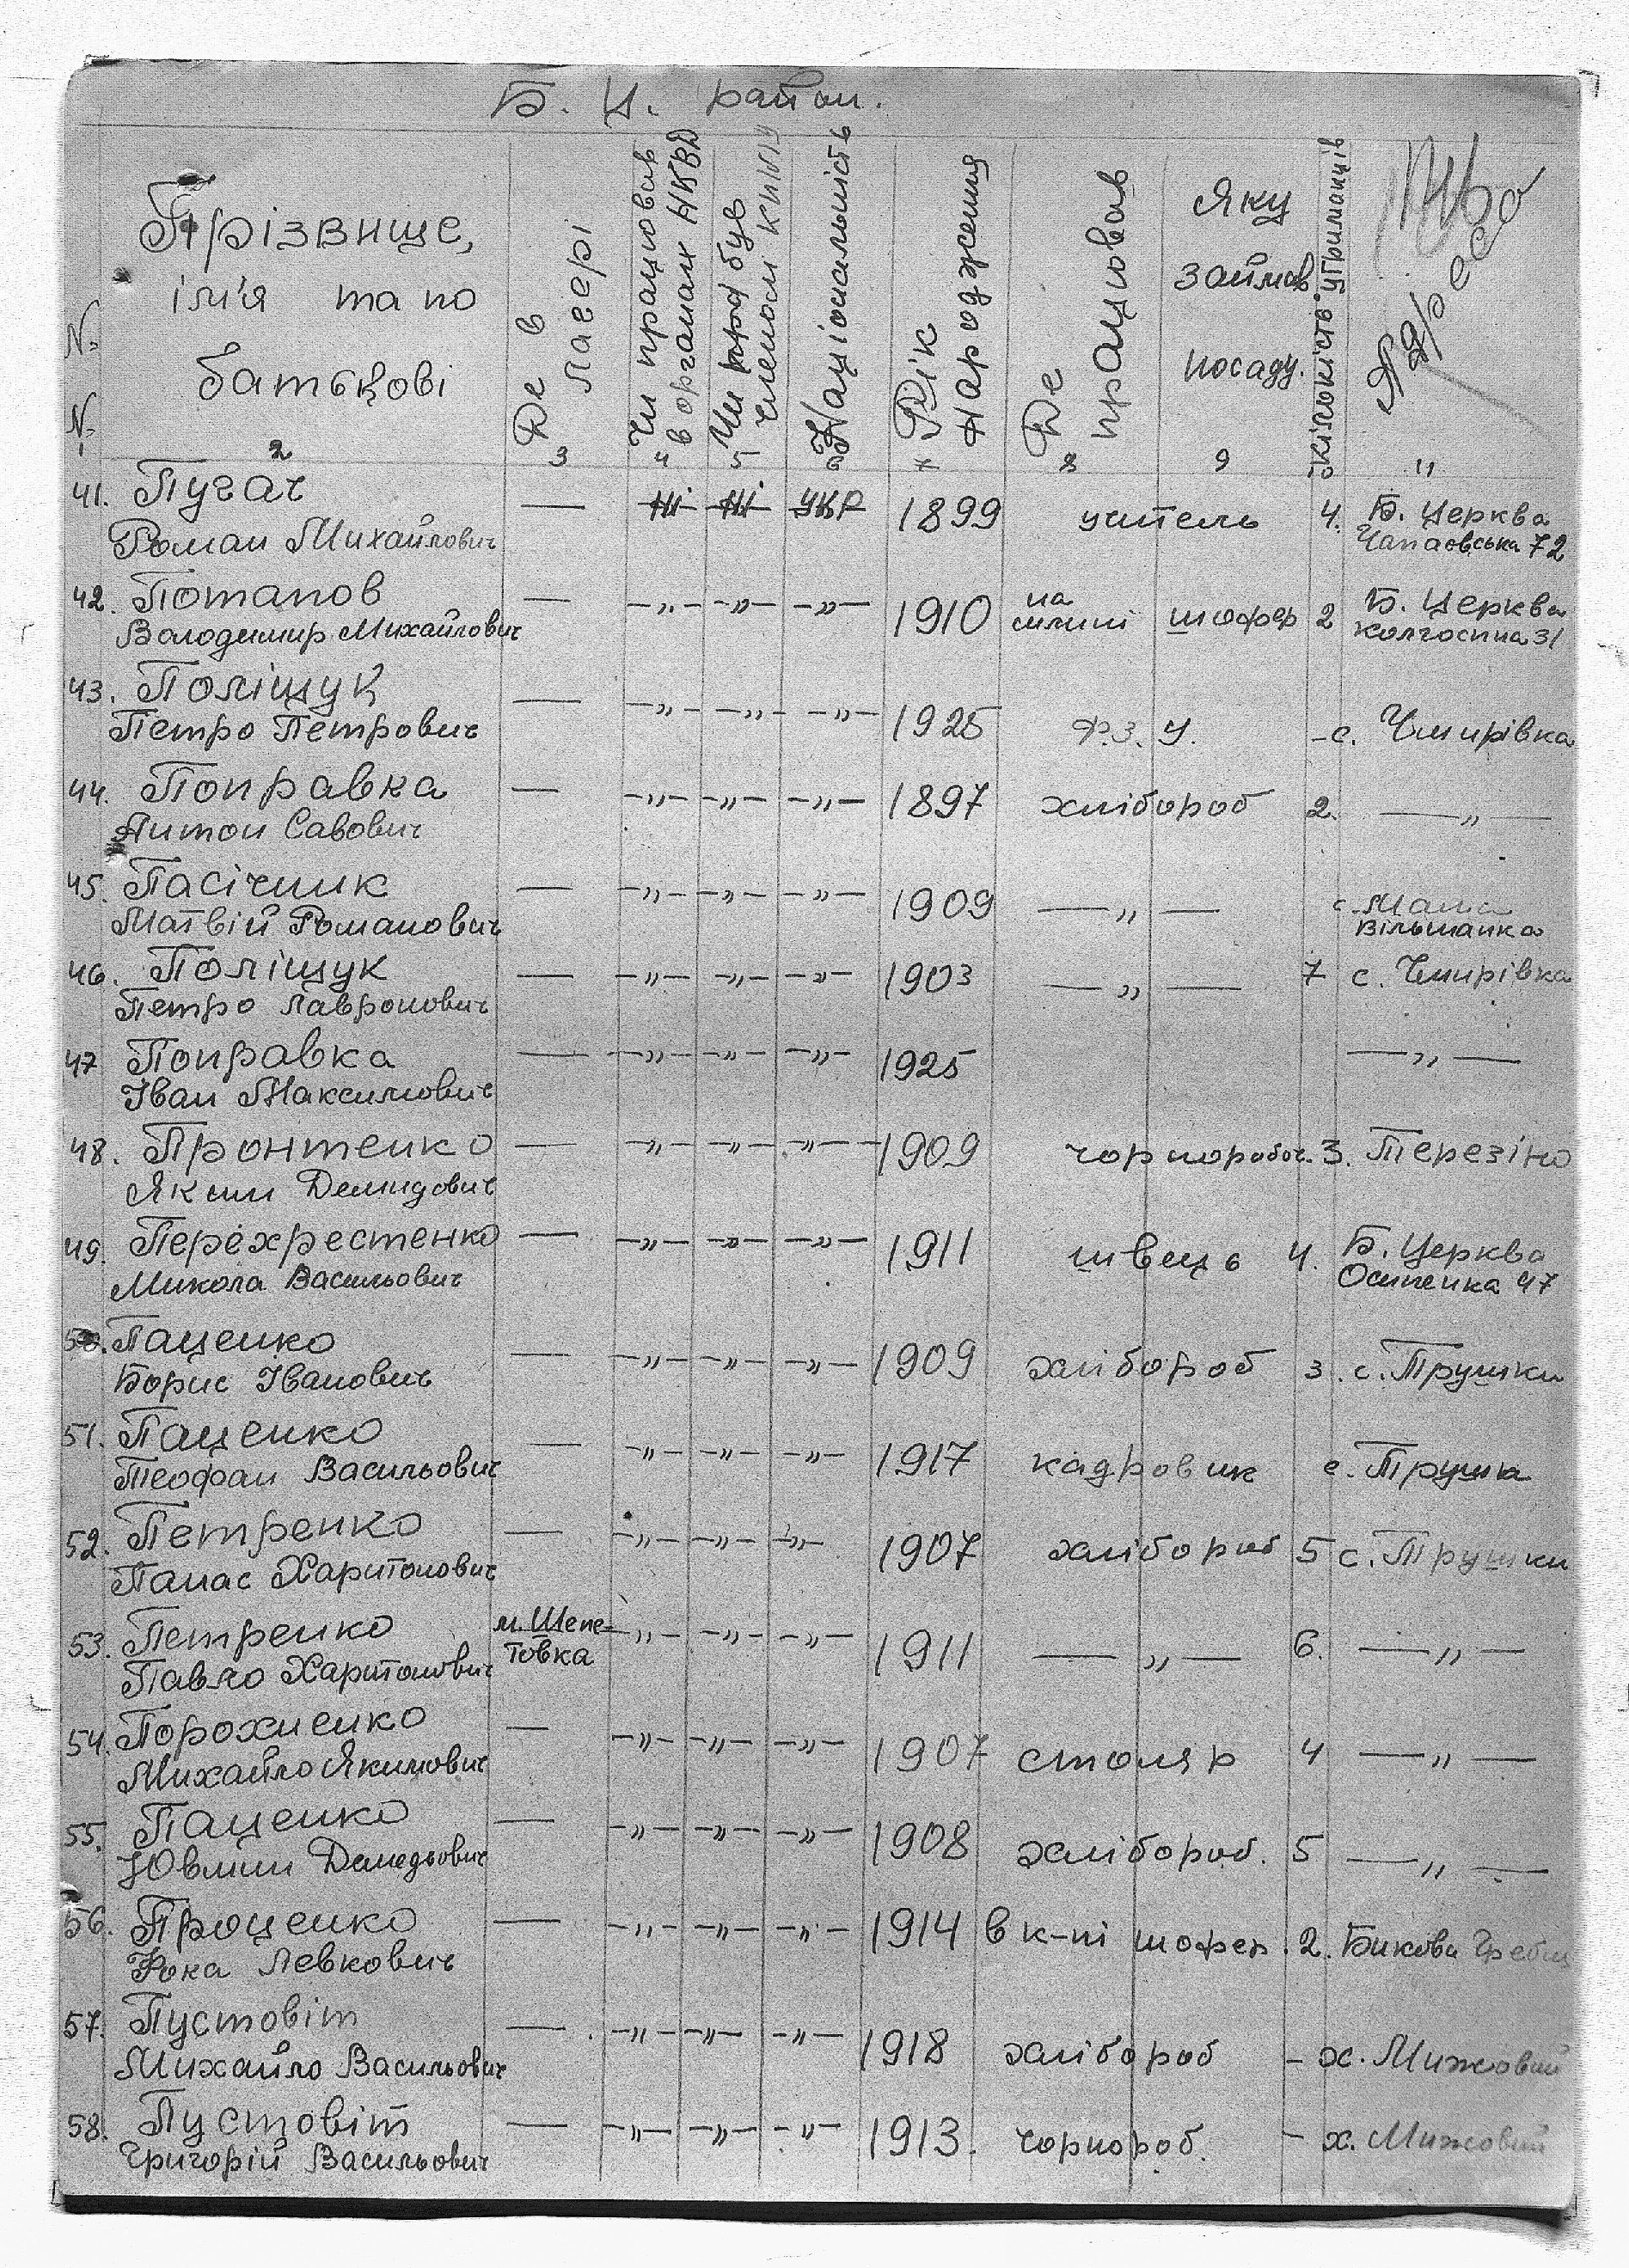 Б. Ц. район.
N. N. Прізвище, ім'я та по батькові
Де в лагері
Чи працював в органах НКВД
Чи був членом
Національність
Рік народження
Де працював
Яку займав. посаду.
кількість утриманців
Адреса
1 2 3 4 5 6 7 8 9 10 11
41. Пугач — Ні Ні укр 1899 учитель 4. Б. Церква
Роман Михайлович Чапаєвська 72
42. Потапов — —"— —"— —"— 1910 на млині шофер 2 Б. Церква
Володимир Михайлович Колгоспна 31
43. Поліщук — —"— —"— —"— 1925 Ф.З.У. – с. Чмирівка
Петро Петрович
44. Поправка — —"— —"— —"— 1897 хлібороб 2. —"—
Антон Савович
45. Пасічник — —"— —"— —"— 1909 —"— с. Мала
Матвій Романович Вільшанка
46. Поліщук — —"— —"— —"— 1903 —"— 7 с. Чмирівка
Петро Лавронович
47 Поправка — —"— —"— —"— 1925 —"—
Іван Максимович
48. Пронтенко — —"— —"— —"— 1909 чорноробоч. 3. Терезіно
Яким Демидович
49. Перехрестенко — —"— —"— —"— 1911 швець 4. Б. Церква
Микола Васильович Осипенка 47
50. Паценко — —"— —"— —"— 1909 хлібороб 3. с. Трушки
Борис Іванович
51. Паценко — —"— —"— —"— 1917 кадровик с. Трушки
Теофан Васильович
52. Петренко — —"— —"— —"— 1907 хлібороб 5 с. Трушки
Панас Харитонович
53. Петренко м. Шепе- —"— —"— —"— 1911 —"— 6. —"—
Павло Харитонович товка
54. Порохненко — —"— —"— —"— 1907 столяр 4 —"—
Михайло Якимович
55. Паценко — —"— —"— —"— 1908 хлібороб. 5 —"—
56. Проценко — —"— —"— —"— 1914 в к-пі шофер. 2. Бикова Гребля
Фока Левкович
57. Пустовіт — —"— —"— —"— 1918 хлібороб – х. Мижовий
Михайло Васильович
58. Пустовіт — —"— —"— —"— 1913. чорнороб. – х. Мижовий
Григорій Васильович